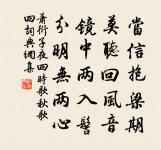 當信抱梁期
莫聽回風音
鏡中兩入鬢
分明無兩心
蕭衍子夜四時歌秋歌
四詞典網集